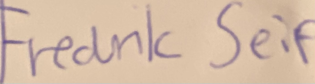 Fredrik Seif